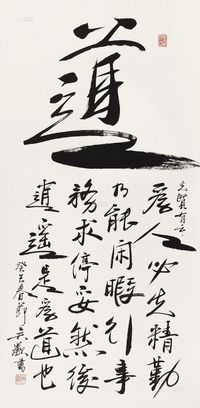 道
先賢有云
為人必先精勤
乃能閑暇行事
務求停妥然後
逍遙是為道也
癸巳春節